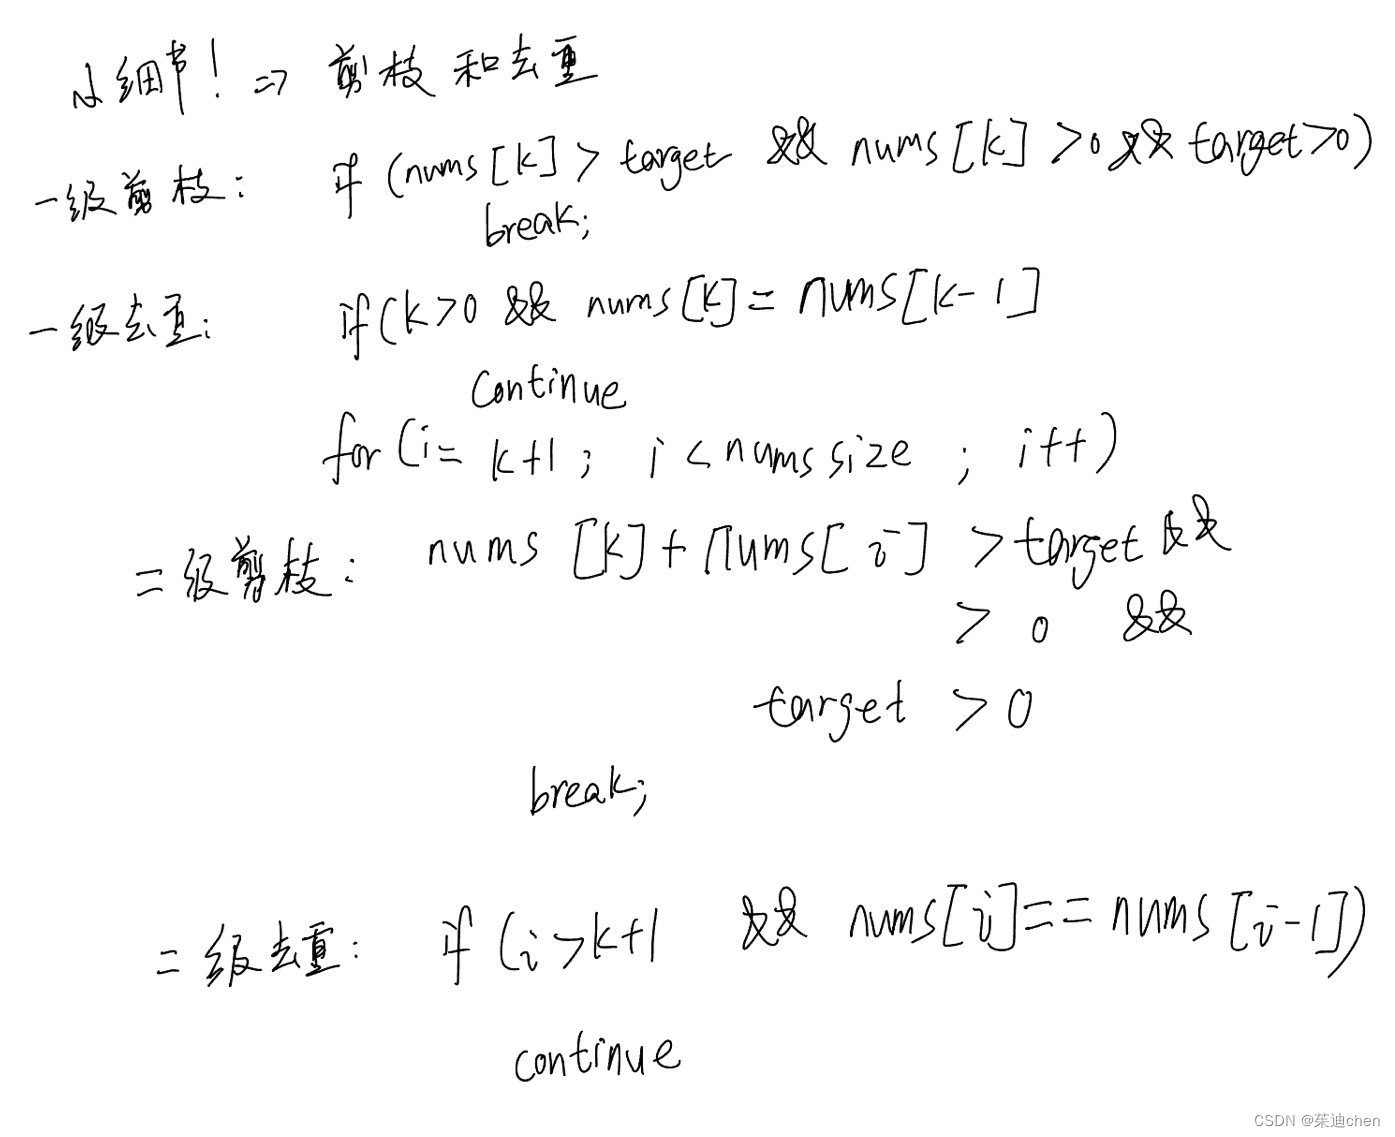 小细节！=> 剪枝和去重
一级剪枝： if (nums[k] > target && nums[k] >0 && target>0)
break;
一级去重： if(k>0 && nums[k]= nums[k-1]
continue
for (i= k+1 ; i < nums size ; i++)
二级剪枝： nums [k]+nums[i] >target &&
> 0 &&
target > 0
break;
二级去重： if (i>k+1 && nums[i]== nums [i-1])
continue
CSDN @茱迪chen